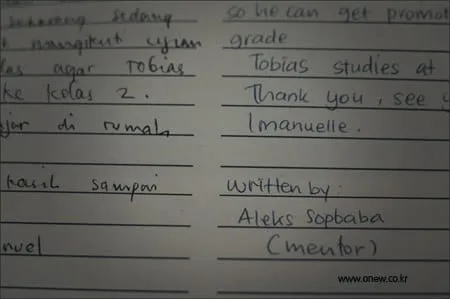 sekarang sedang
mengikut ujian
agar Tobias
ke kelas 2.
di rumah
kasih sampai
nuel
so he can get promot
grade
Tobias studies at
Thank you, see y
Imanuelle.
written by:
Aleks Sopbaba
(mentor)
www.onew.co.kr